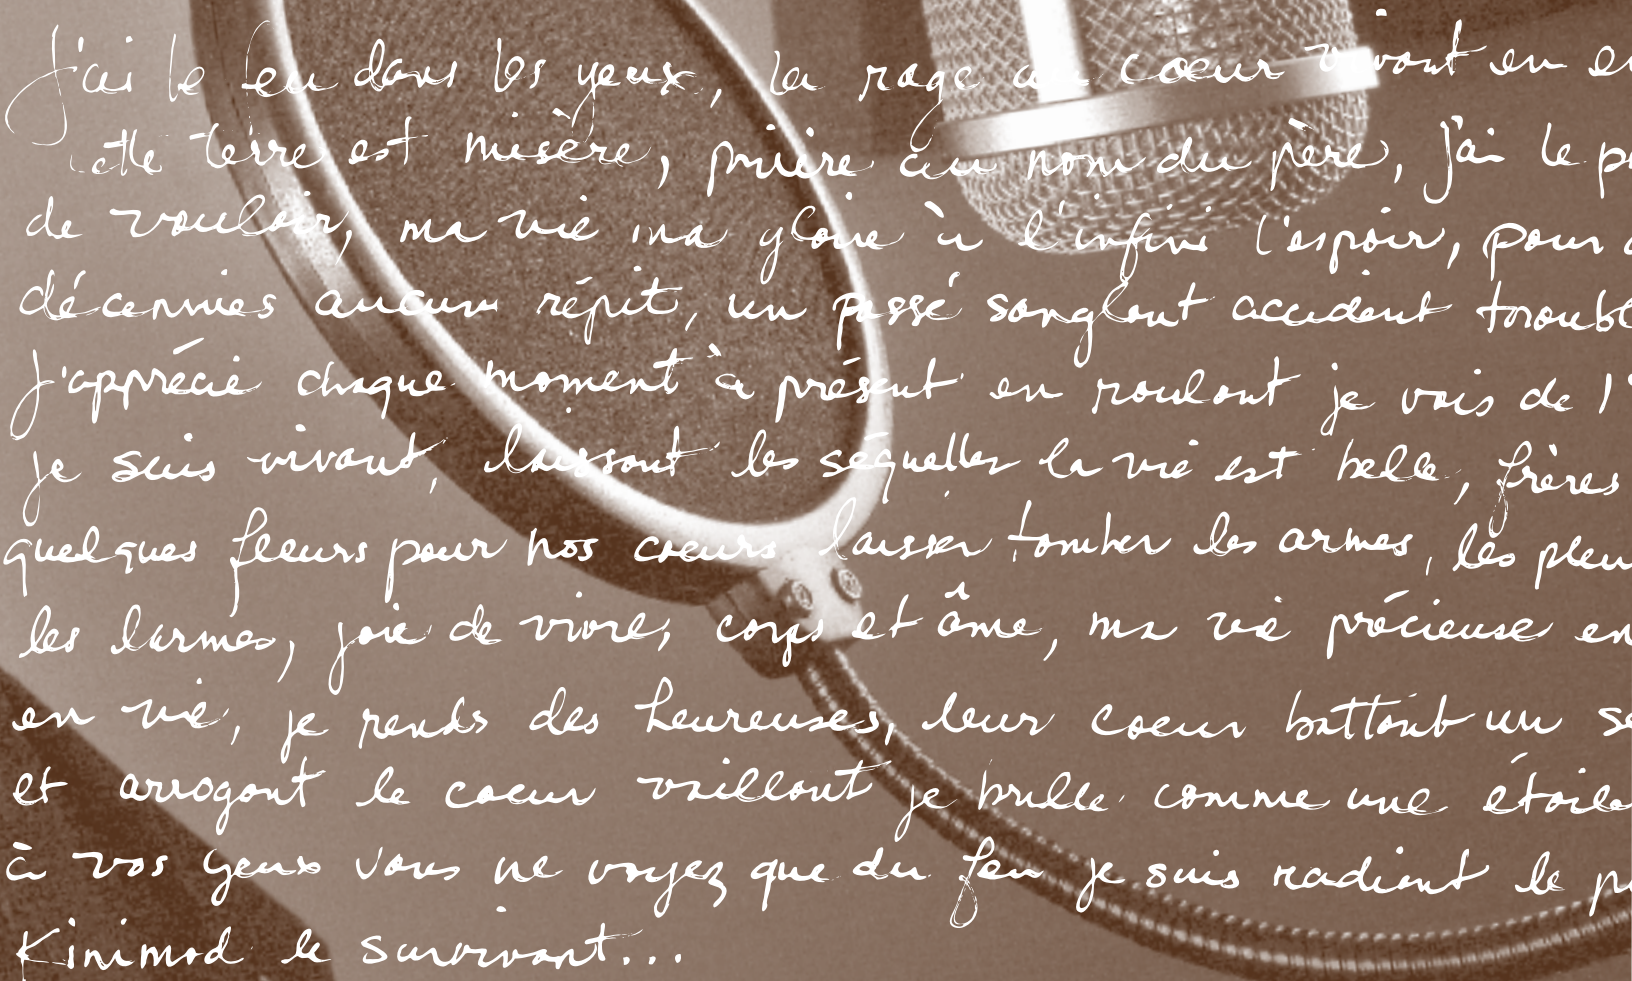 J'ai le feu dans les yeux, la rage au coeur vivant en
cette terre est misère, prière au nom du père, j'ai le
de vouloir, ma vie ma gloire à l'infini l'espoir, pour
décennies aucun répit, un passé sanglant accident
J'apprécie chaque moment à présent en roulant je vois de
je suis vivant, laissant les séquelles la vie est belle, frères
quelques fleurs pour nos coeurs laisser tomber les armes, les
les larmes, joie de vivre, corps et âme, ma vie précieuse
en vie, je rends des heureuses, leur coeur battant un
et arrogant le coeur vaillant je brille comme une étoile
à vos yeux vous ne voyez que du feu je suis radiant le
Kinimod le survivant...